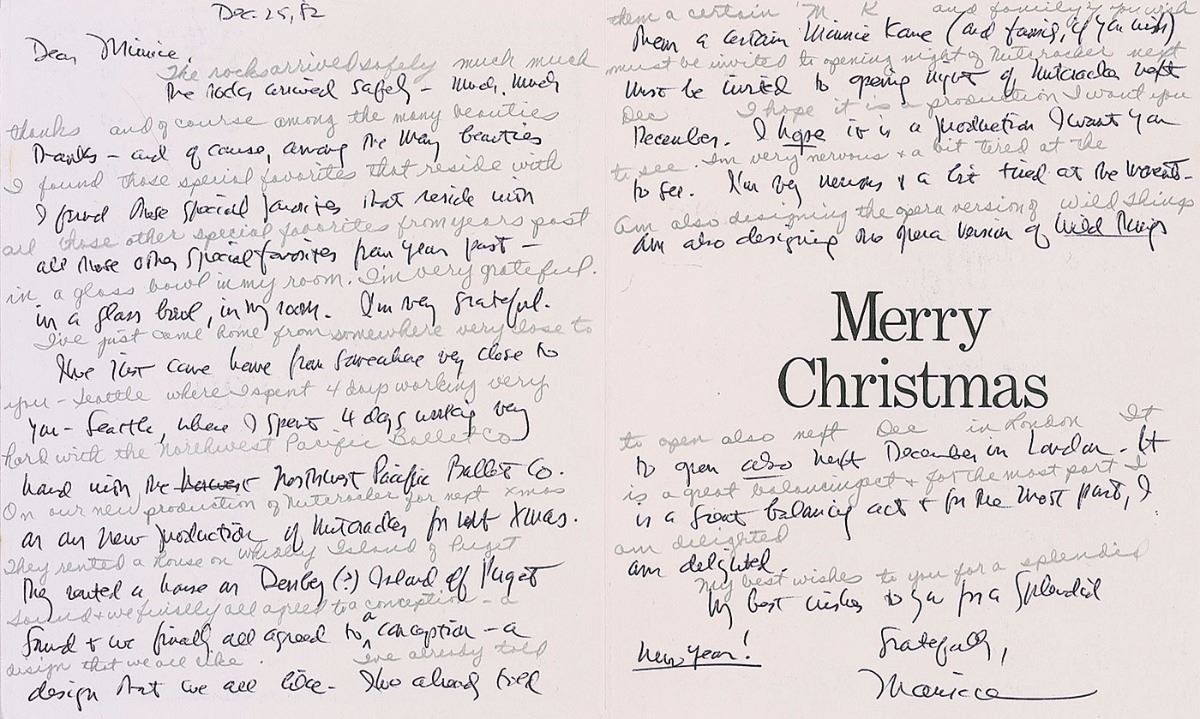 Dec. 25, 82
Dear Minnie,
The rocks arrived safely much much
The rocks arrived safely – Much, Much
thanks and of course among the many beauties
thanks – and of course, among the many beauties
I found those special favorites that reside with
I found those special favorites that reside with
all those other special favorites from years past
all those other special favorites from year past –
in a glass bowl in my room. I'm very grateful.
in a glass bowl, in my room. I'm very grateful.
I've just come home from somewhere very close to
I've just came home from somewhere very close to
you – Seattle where I spent 4 days working very
You – Seattle, where I spent 4 days working very
hard with the Northwest Pacific Ballet Co
hard with the Northwest Pacific Ballet Co.
On our new production of Nutcracker for next xmas
on our new production of Nutcracker for next Xmas.
They rented a house on Island of Puget
They rented a house on (?) Island off Puget
Sound + we finally all agreed to a conception – a
Sound + we finally all agreed to a conception – a
design that we all like. I've already told
design that we all like – I've already told
them a certain M K and family if you wish
them a certain Minnie Kane (and family, if you wish)
must be invited to opening night of Nutcracker next
must be invited to opening night of Nutcracker next
Dec I hope it is a production I want you
December. I hope it is a production I want you
to see. I'm very nervous + a bit tired at the
to see. I'm very nervous + a bit tired at the moment –
Am also designing the opera version of Wild Things
am also designing the opera version of Wild Things
Merry
Christmas
to open also next Dec in London It
to open also next December in London. It
is a great balancing act + for the most part I
is a great balancing act + for the most part, I
am delighted
am delighted.
My best wishes to you for a splendid
My best wishes to you for a splendid
New Year!
Gratefully,
Maurice